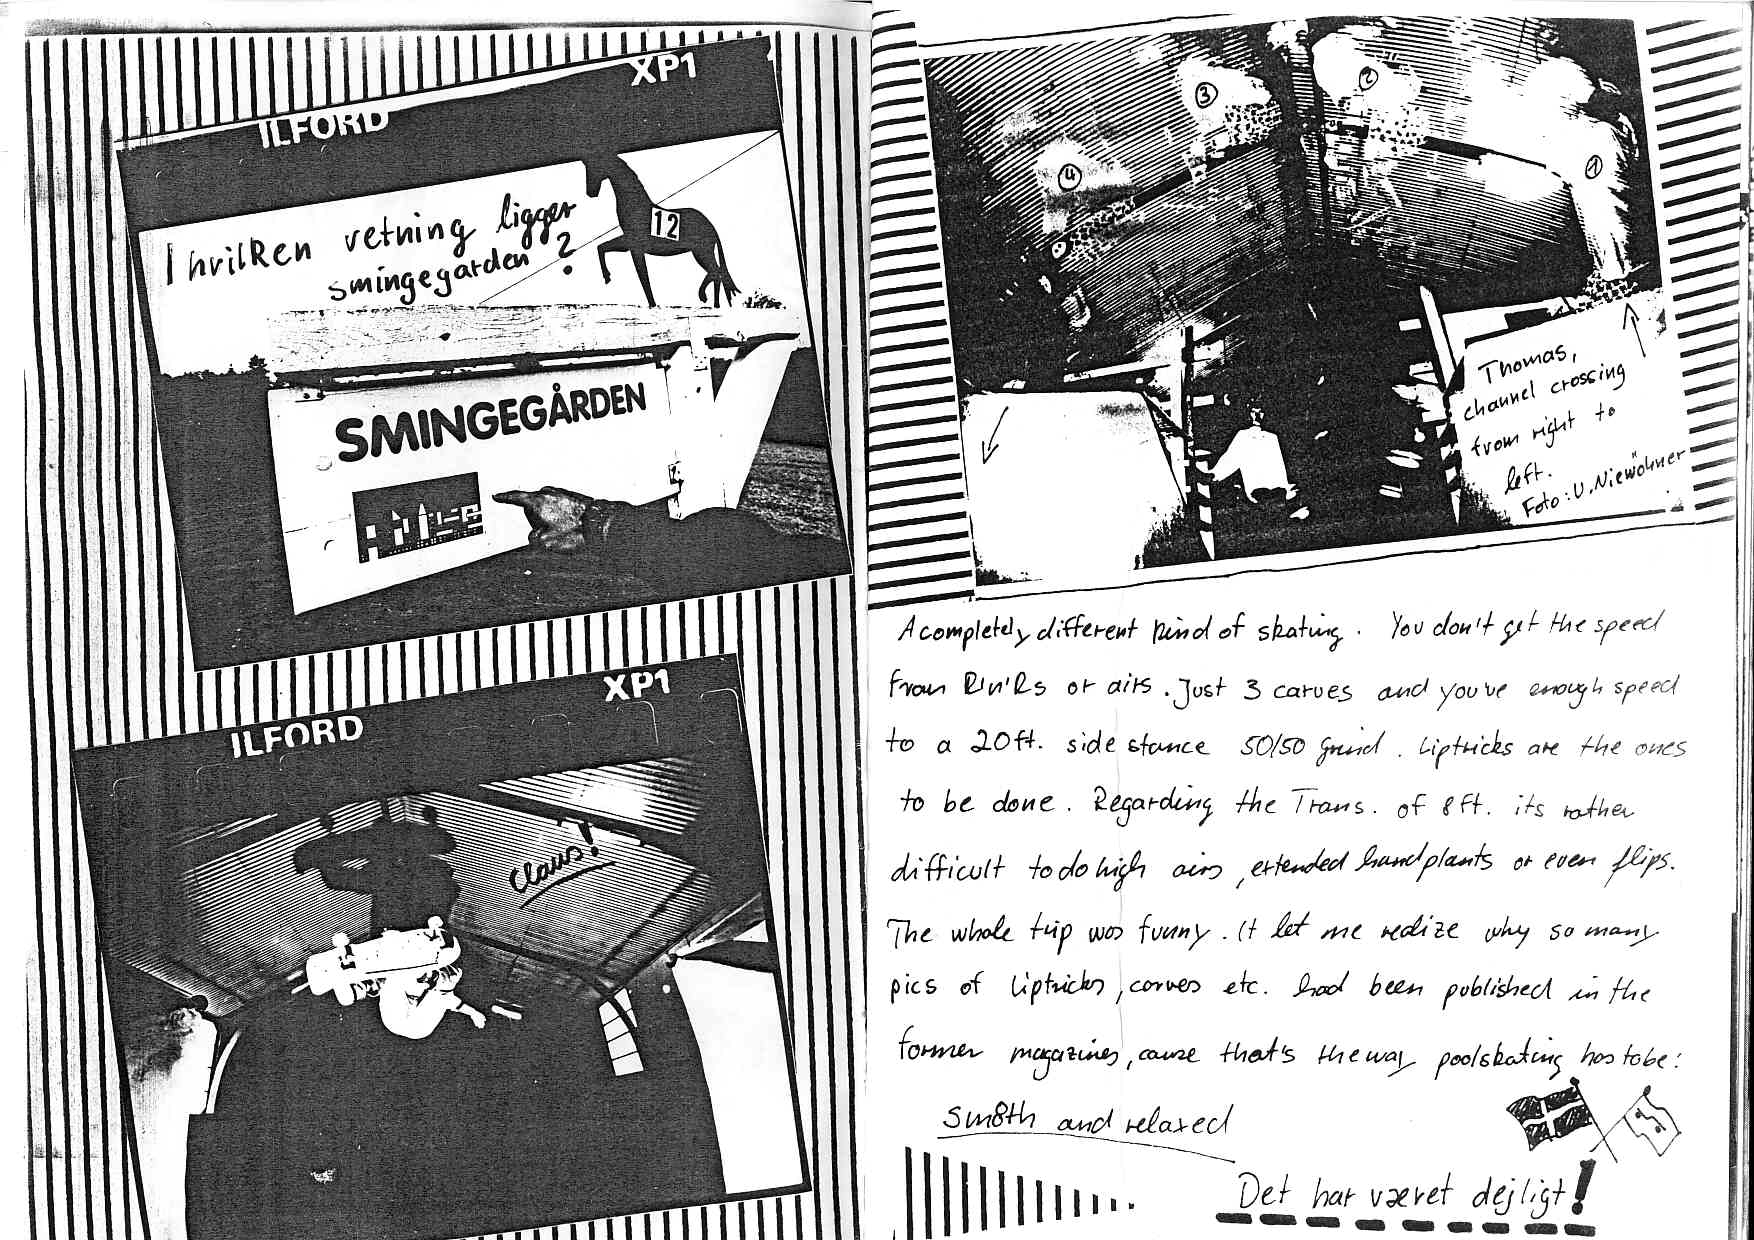 ILFORD XP1
I hvilken retning ligger
smingegarden ?
12
SMINGEGÅRDEN
ILFORD XP1
Claus!
4
3
2
1
Thomas,
channel crossing
from right to
left.
Foto: U. Niewöhner
A completely different kind of skating. You don't get the speed
from R'n'Rs or airs. Just 3 carves and you've enough speed
to a 20ft. side stance 50/50 grind. Liptricks are the ones
to be done. Regarding the Trans. of 8ft. its rather
difficult to do high airs, extended handplants or even flips.
The whole trip was funny. It let me realize why so many
pics of liptricks, carves etc. had been published in the
former magazines, cause that's the way poolskating has to be:
Sm8th and relaxed
Det har været dejligt!